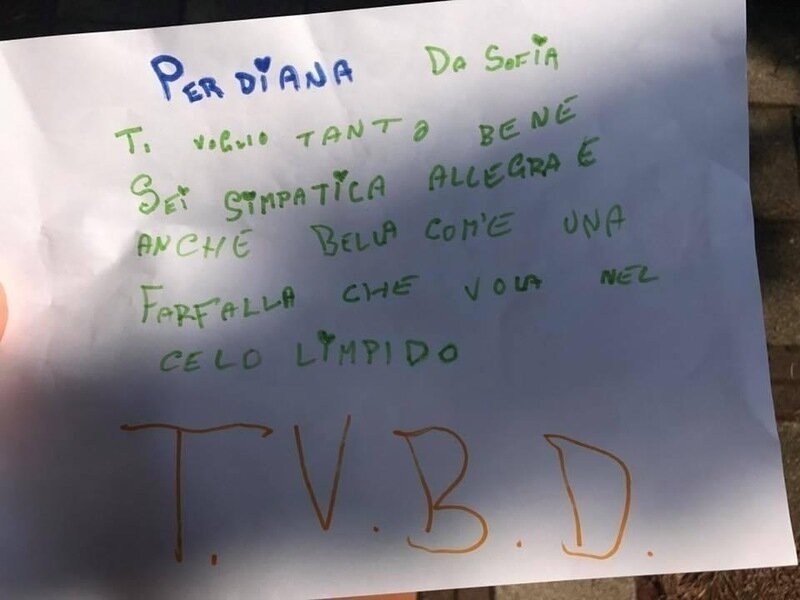 PER DIANA DA SOFIA
TI VOGLIO TANTO BENE
SEI SIMPATICA ALLEGRA E
ANCHE BELLA COM'E UNA
FARFALLA CHE VOLA NEL
CELO LIMPIDO
T.V.B.D.